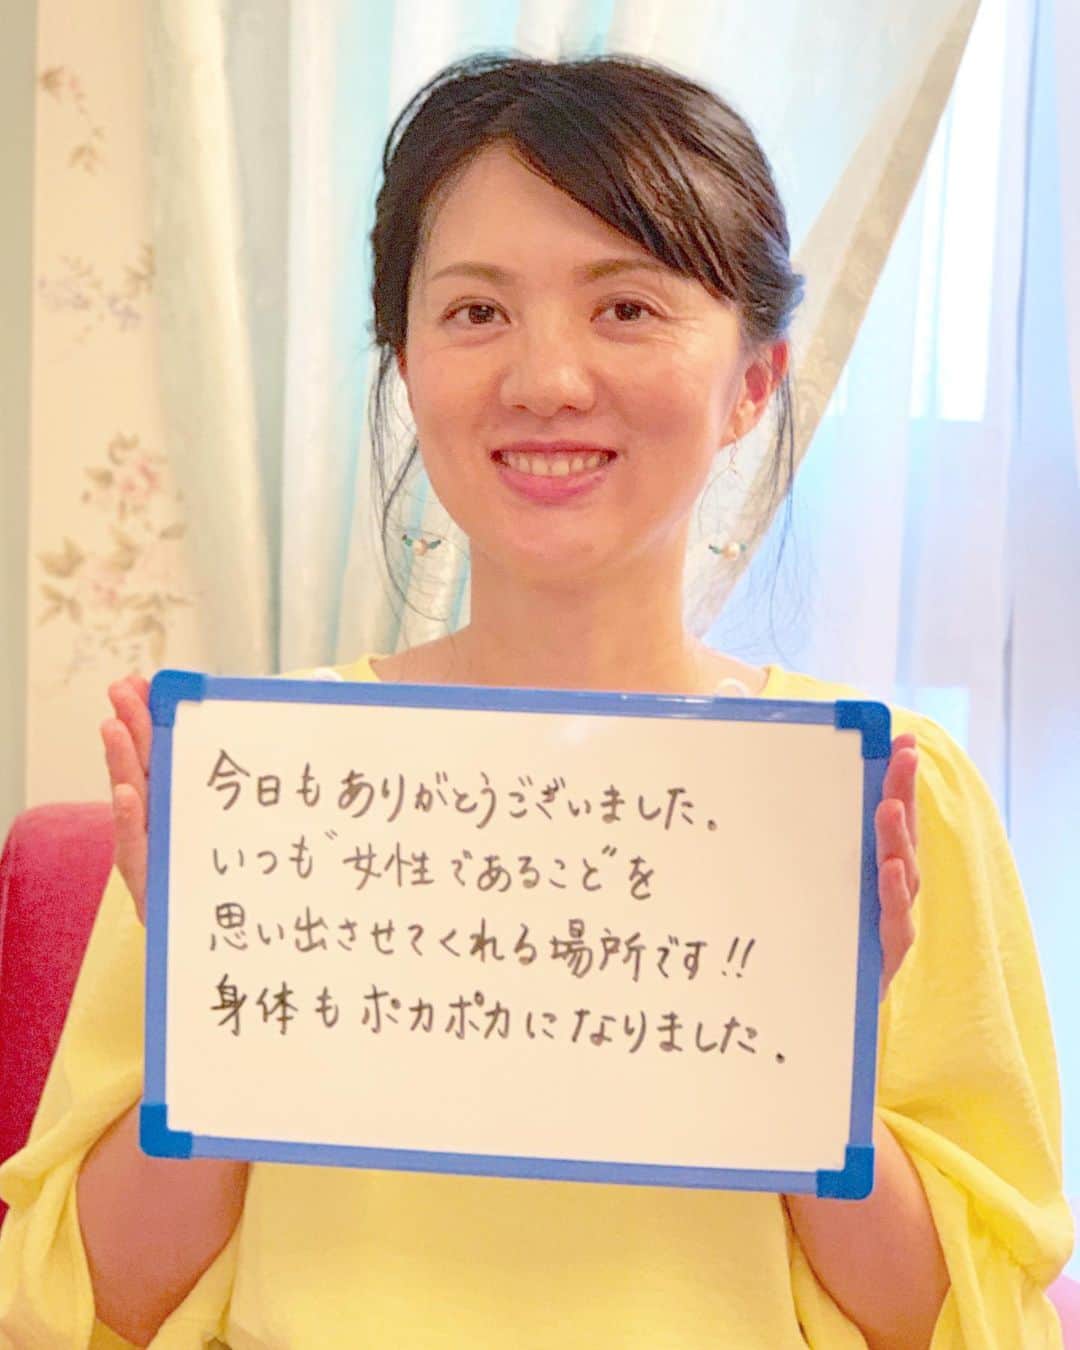 今日もありがとうございました。
いつも"女性であること"を
思い出させてくれる場所です!!
身体もポカポカになりました。